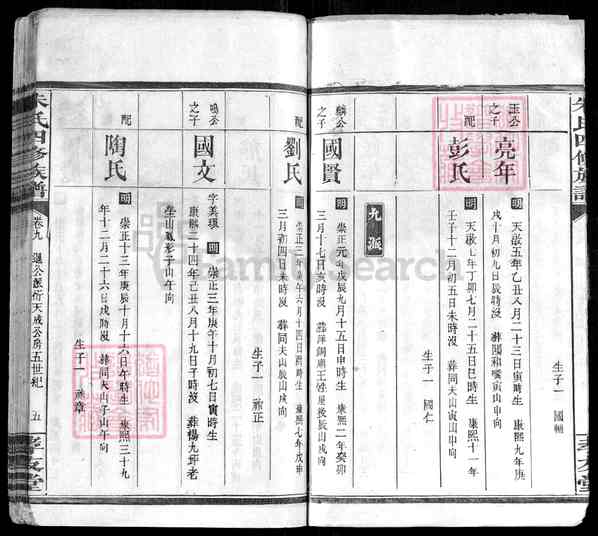 朱氏四修族譜
孝友堂
玉公之子
亮年
明 天啟五年乙丑八月二十三日寅時生 康熙九年庚
戌十月初九日辰時沒
生子一 國輔
配
彭氏
明 天啟七年丁卯七月二十五日巳時生 康熙十一年
壬子十二月初五日未時沒 葬同夫山寅山申向
生子一 國仁
九派
之子
國賢
明 崇正元年戊辰九月十五日申時生 康熙二年癸卯
三月十七日亥時沒
配
劉氏
明 崇正三年庚午六月十四日酉時生 康熙七年戊申
三月初四日未時沒 葬同夫山辰山戌向
生子一 祚正
鳴公之子
國文
字美璜 明 崇正三年庚午十月初七日寅時生
康熙二十四年乙丑八月十九日子時沒 葬楊九坪老
坐山子山午向
配
陶氏
明 崇正十三年庚辰十月十六日午時生 康熙三十九
年十二月二十六日戌時沒 葬同夫山子山午向
生子一 祚章
朱氏四修族譜
卷九
派衍天成公房五世紀
五
孝友堂
FamilySearch